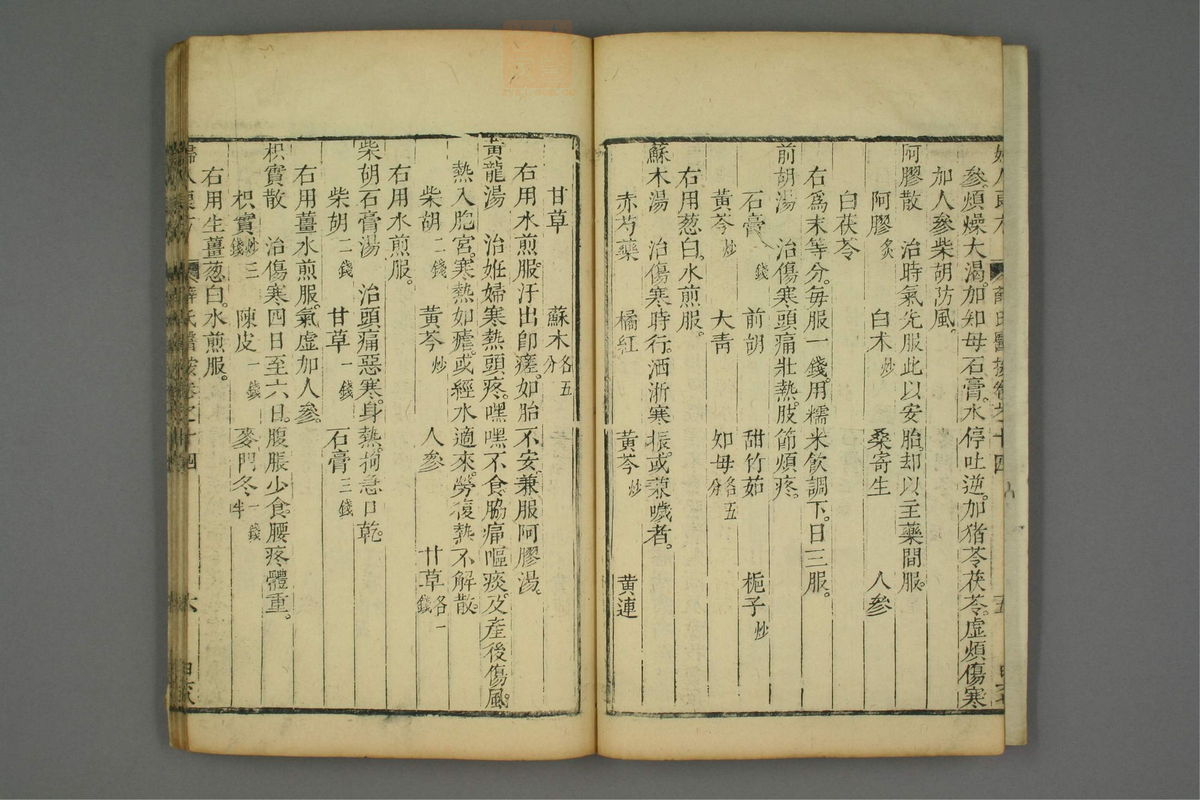 婦人良方 薛氏醫按卷之十四 五
參。煩燥大渴。加知母石膏。水停吐逆。加猪苓茯苓。虛煩傷寒
加人參柴胡防風。
阿膠散 治時氣先服此以安胎。却以主藥間服。
阿膠炙 白术炒 桑寄生 人參
白茯苓
右爲末等分。每服一錢。用糯米飮調下。日三服。
前胡湯 治傷寒頭痛壯熱。肢節煩疼。
石膏一錢 前胡 甜竹茹 梔子炒
黃芩炒 大靑 知母各五分
右用葱白。水煎服。
蘇木湯 治傷寒時行。洒淅寒振。或兼噦者。
赤芍藥 橘紅 黃芩炒 黄連
甘草 蘇木各五分
右用水煎服。汗出卽瘥。如胎不安。兼服阿膠湯。
黃龍湯 治姙婦寒熱頭疼。嘿嘿不食。脇痛嘔痰。及產後傷風。
熱入胞宮。寒熱如瘧。或經水適來。勞復熱不解散。
柴胡二錢 黃芩炒 人參 甘草各一錢
右用水煎服。
柴胡石膏湯 治頭痛惡寒。身熱。拘急口乾。
柴胡二錢 甘草一錢 石膏三錢
右用薑水煎服。氣虛加人參。
枳實散 治傷寒四日至六日。腹脹少食。腰疼體重。
枳實炒三錢 陳皮一錢 麥門冬一錢半
右用生薑葱白。水煎服。
婦人良方 薛氏醫按卷之十四 六